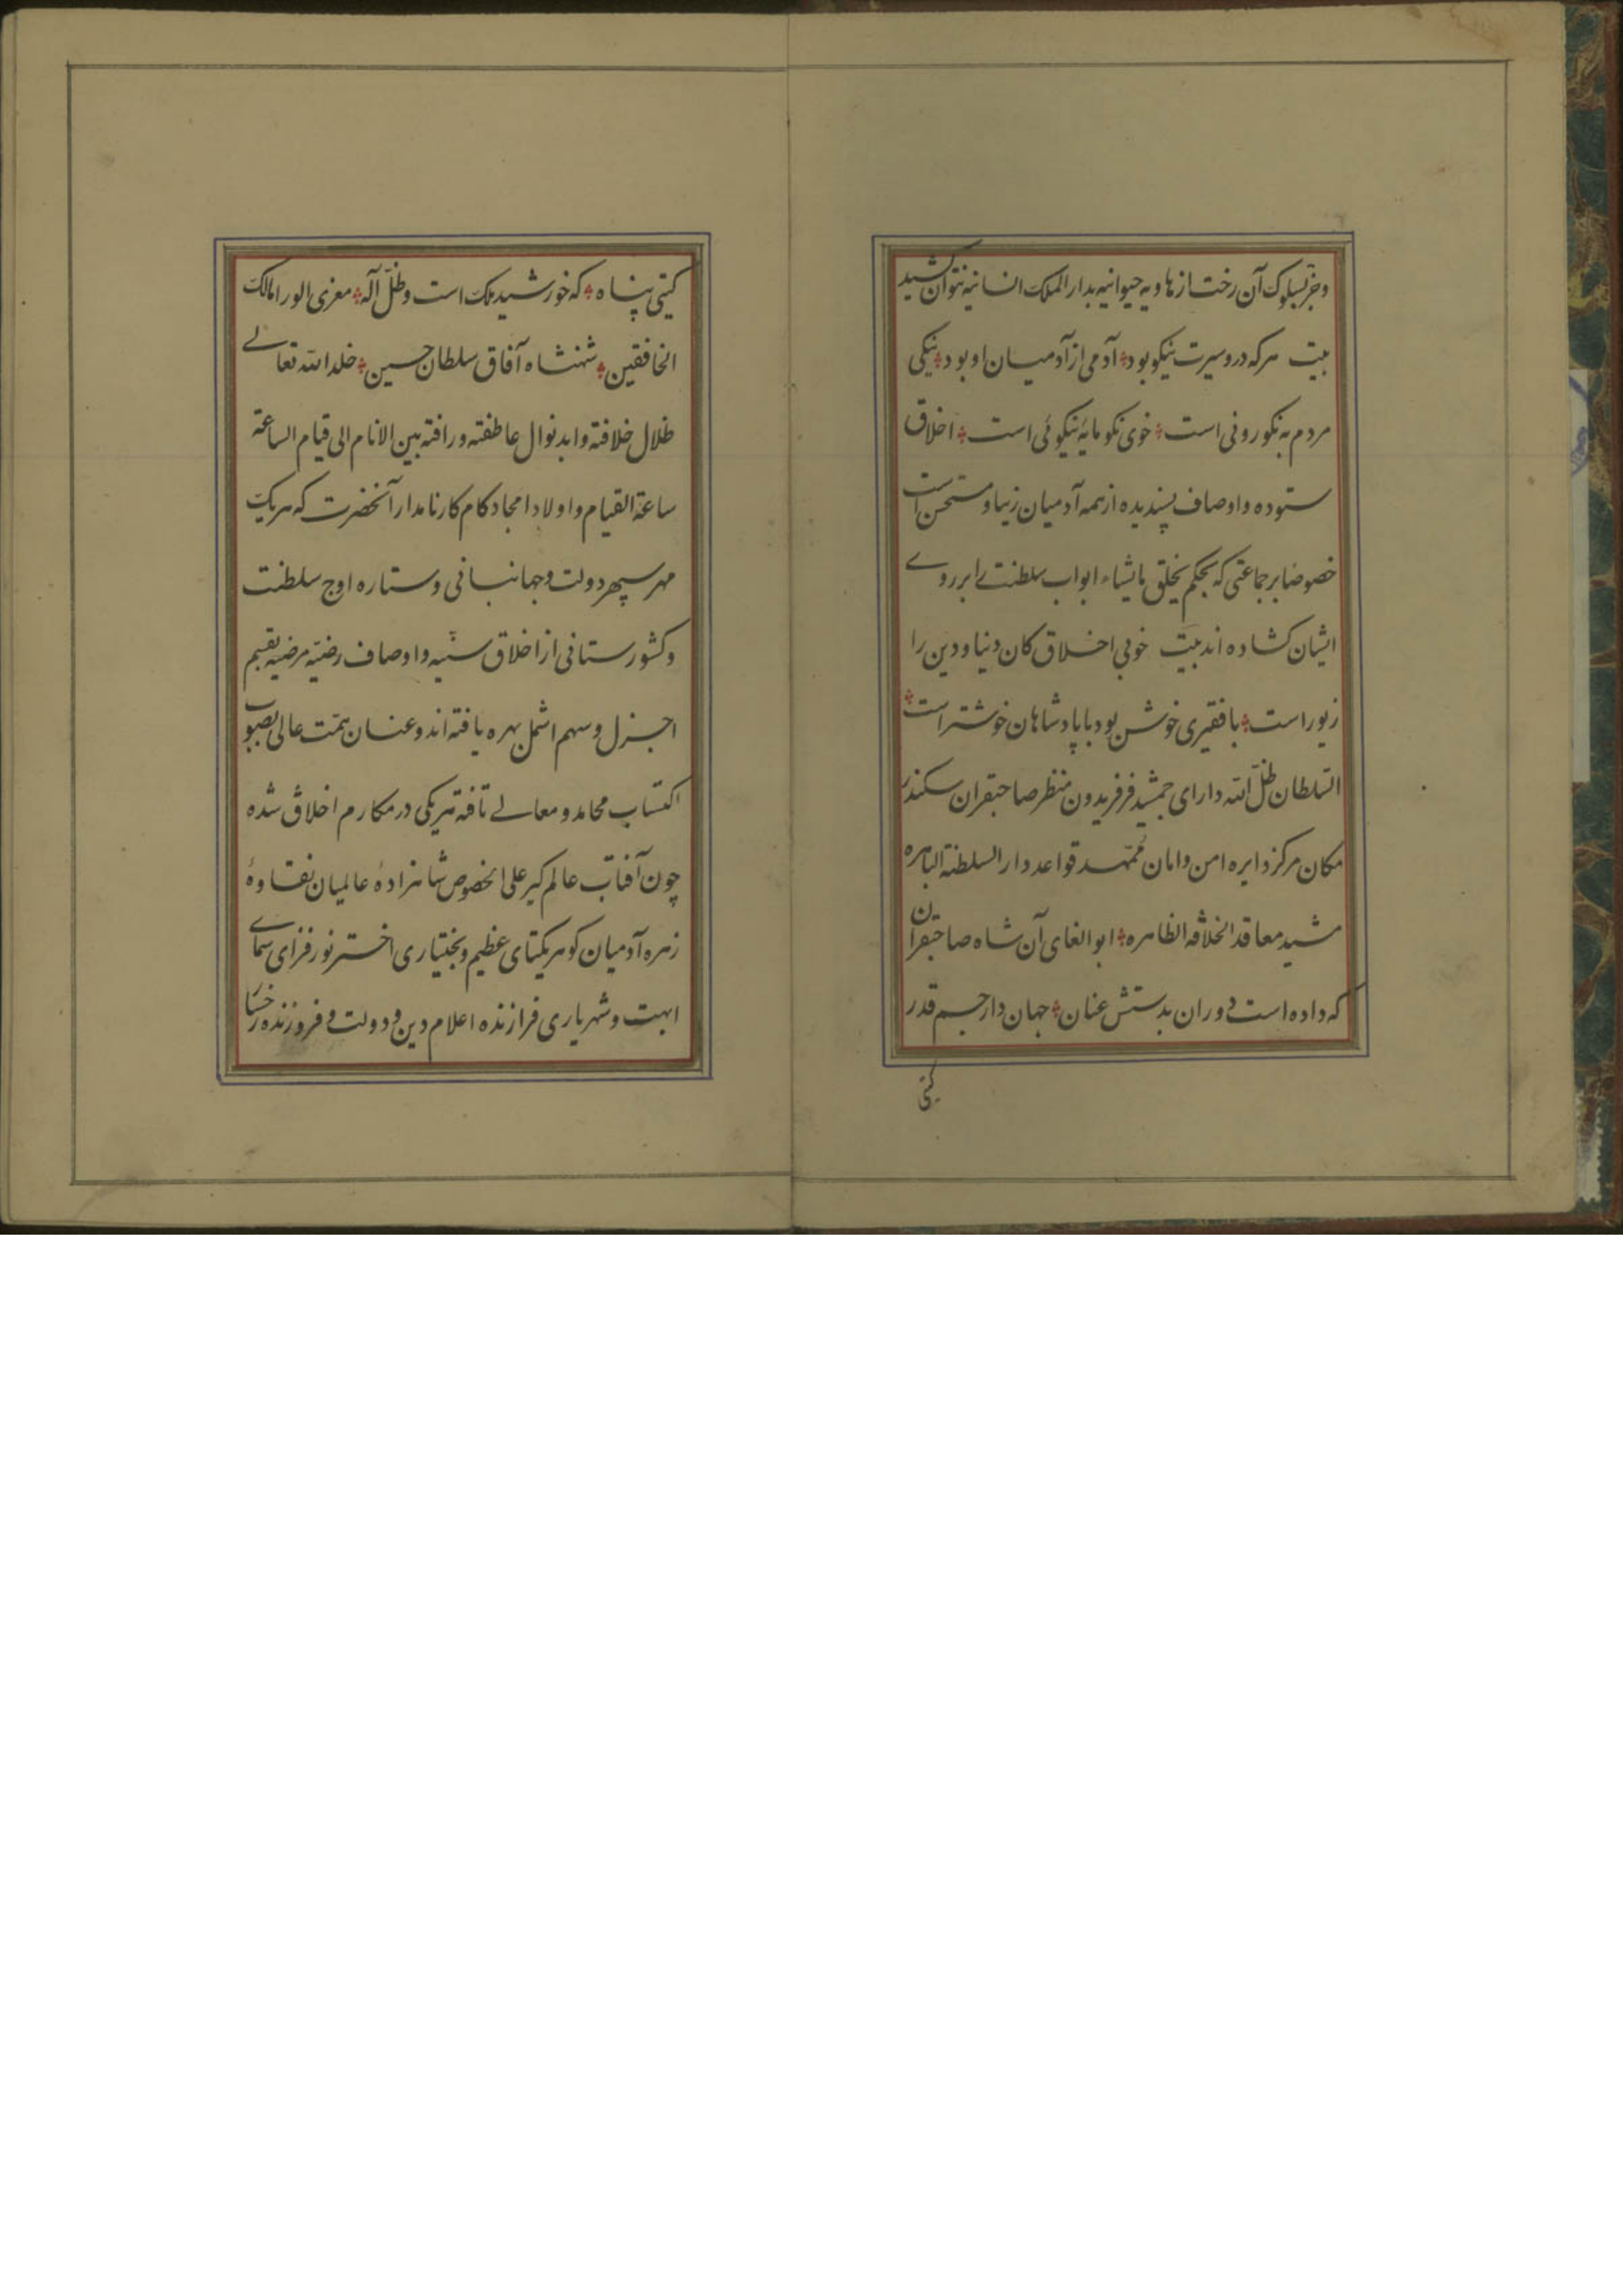 وجز بسلوک آن رخت از هاویه حیوانیه بدار الملک انسانیه نتوان کشید
بیت هرکه درو سیرت نیکو بود آدمی از آدمیان او بود نیکی
مردم نه نکو روئی است خوی نکو مایهٔ نیکوئی است اخلاق
ستوده و اوصاف پسندیده از همه آدمیان زیبا و مستحسن است
خصوصا بر جماعتی که بحکم یخلق ما یشاء ابواب سلطنت را بر روے
ایشان کشاده اند بیت خوبی اخلاق کان دنیا و دین را
زیور است با فقیری خوش بود با پادشاهان خوشتر است
السلطان ظلّ الله دارای جمشید فر فریدون منظر صاحبقران سکندر
مکان مرکز دایره امن و امان مُمّهد قواعد دار السلطنة الباهره
مشید معاقد الخلافه الظاهره ابو الغای آن شاه صاحبقران
که داده است دوران بدستش عنان جهاندار جم قدر
گیتی
گیتی پناه که خورشید ملک است و ظلّ اله معزی الورا مالک
الخافقین شهنشاه آفاق سلطان حسین خلد الله تعالے
ظلال خلافته و ابد نوال عاطفته و رافته بین الانام الی قیام الساعة
ساعة القیام و اولاد امجاد کام کار نامدار آنحضرت که هر یک
مهر سپهر دولت و جهانبانی و ستاره اوج سلطنت
و کشورستانی از اخلاق سنّیه و اوصاف رضیّه مرضیه بقسم
اجزل و سهم اشمل بهره یافته اند و عنان همّت عالی بصوب
اکتساب محامد و معالے تافته هر یکی در مکارم اخلاق شده
چون آفتاب عالم گیر علی الخصوص شاهزادهٔ عالمیان نقاوهٔ
زهره آدمیان گوهر یکتای عظیم و بختیاری اختر نورفزای سماے
ابهت و شهریاری فرازنده اعلام دین و دولت و فروزنده رخسا